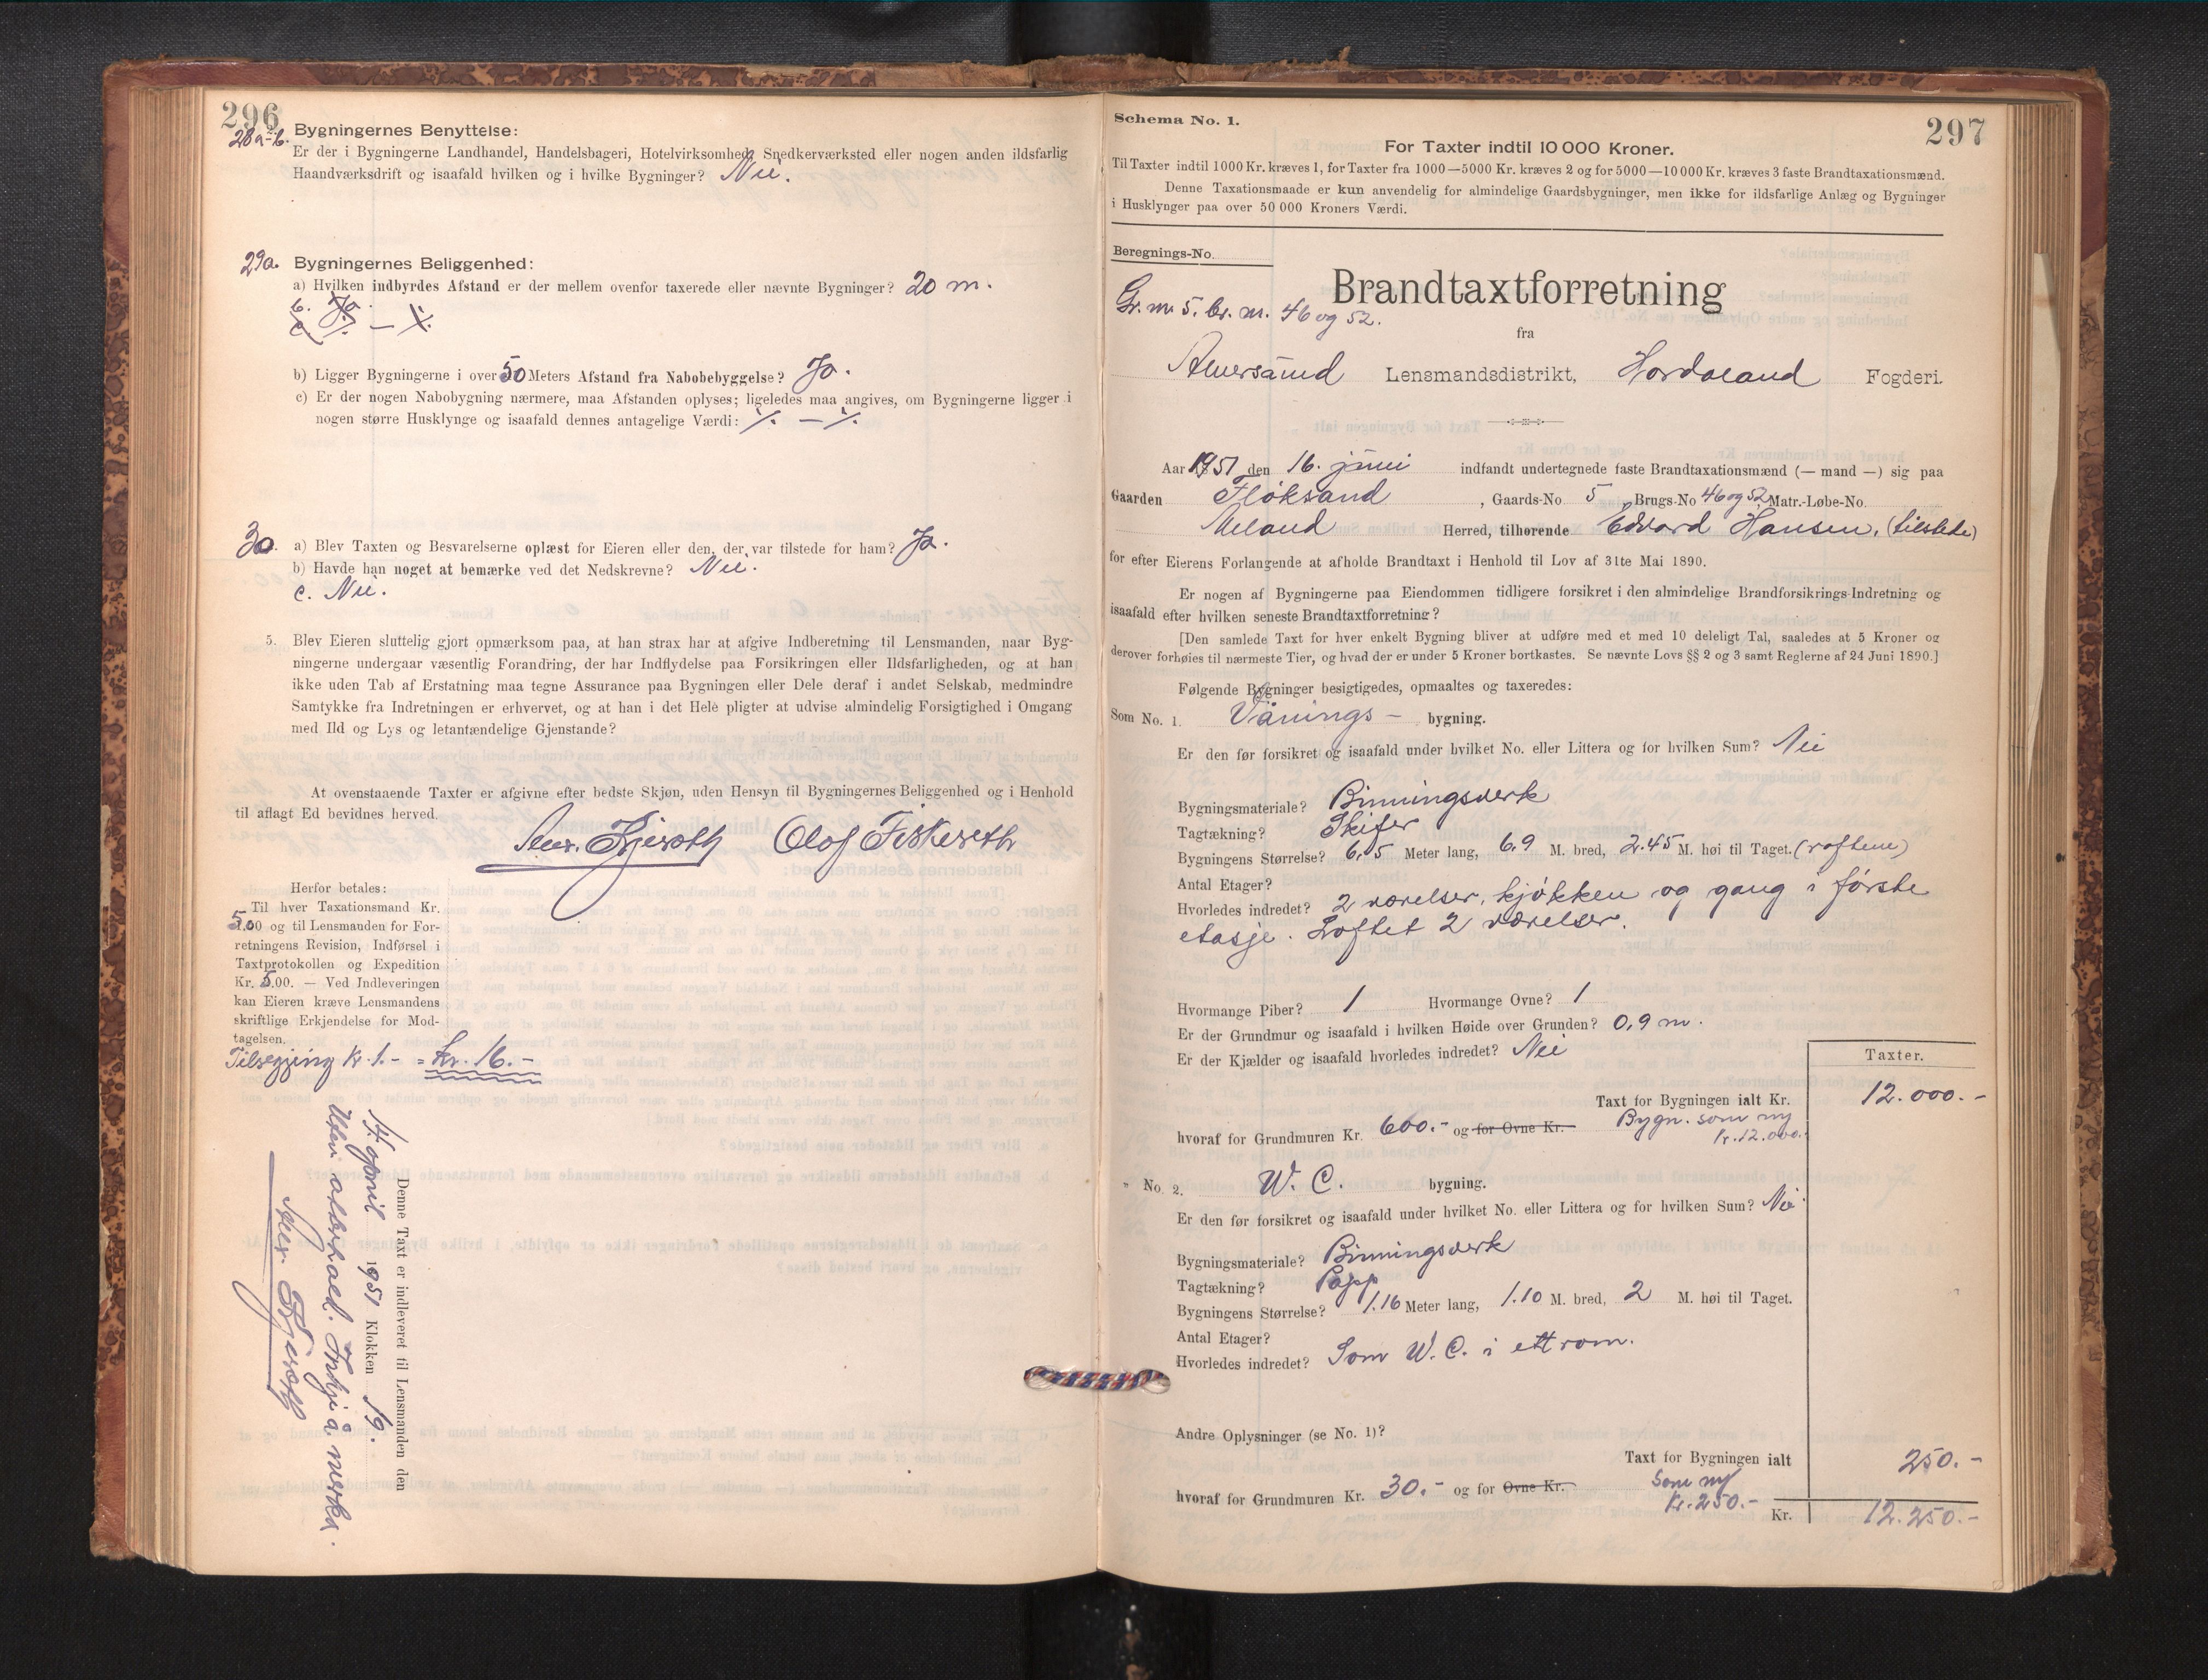 296
28a-b. Bygningernes Benyttelse:
Er der i Bygningerne Landhandel, Handelsbageri, Hotelvirksomhed, Snedkerværksted eller nogen anden ildsfarlig
Haandværksdrift og isaafald hvilken og i hvilke Bygninger? Nei.
29a. Bygningernes Beliggenhed:
a) Hvilken indbyrdes Afstand er der mellem ovenfor taxerede eller nævnte Bygninger? 20 m.
b. Ja.
c. ./. — ./.
b) Ligger Bygningerne i over 50 Meters Afstand fra Nabobebyggelse? Ja.
c) Er der nogen Nabobygning nærmere, maa Afstanden oplyses; ligeledes maa angives, om Bygningerne ligger i
nogen større Husklynge og isaafald dennes antagelige Værdi: ./. — ./.
30. a) Blev Taxten og Besvarelserne oplæst for Eieren eller den, der var tilstede for ham? Ja.
b) Havde han noget at bemærke ved det Nedskrevne? Nei.
c. Nei.
5. Blev Eieren sluttelig gjort opmærksom paa, at han strax har at afgive Indberetning til Lensmanden, naar Byg-
ningerne undergaar væsentlig Forandring, der har Indflydelse paa Forsikringen eller Ildsfarligheden, og at han
ikke uden Tab af Erstatning maa tegne Assurance paa Bygningen eller Dele deraf i andet Selskab, medmindre
Samtykke fra Indretningen er erhvervet, og at han i det Hele pligter at udvise almindelig Forsigtighed i Omgang
med Ild og Lys og letantændelige Gjenstande?
At ovenstaaende Taxter er afgivne efter bedste Skjøn, uden Hensyn til Bygningernes Beliggenhed og i Henhold
til aflagt Ed bevidnes herved.
Olaf Fiskeseth
Herfor betales:
Til hver Taxationsmand Kr.
5.00 og til Lensmanden for For-
retningens Revision, Indførsel i
Taxtprotokollen og Expedition
Kr. 5.00. — Ved Indleveringen
kan Eieren kræve Lensmandens
skriftlige Erkjendelse for Mod-
tagelsen.
Tilsegjing Kr 1.- = kr. 16.-
Denne Taxt er indleveret til Lensmanden den
14. april 1951 Klokken 19.
Uten merka.
297
Schema No. 1.
For Taxter indtil 10 000 Kroner.
Til Taxter indtil 1000 Kr. kræves 1, for Taxter fra 1000—5000 Kr. kræves 2 og for 5000—10000 Kr. kræves 3 faste Brandtaxationsmænd.
Denne Taxationsmaade er kun anvendelig for almindelige Gaardsbygninger, men ikke for ildsfarlige Anlæg og Bygninger
i Husklynger paa over 50 000 Kroners Værdi.
Beregnings-No.
Gr. nr. 5. br. nr. 46 og 52.
Brandtaxtforretning
fra
Alversund Lensmandsdistrikt, Hordaland Fogderi.
Aar 1951 den 16. juni indfandt undertegnede faste Brandtaxationsmænd (— mand —) sig paa
Gaarden Fløksand, Gaards-No 5 Brugs-No 46 og 52 Matr.-Løbe-No.
Meland Herred, tilhørende Edvard Hansen, (tilstede)
for efter Eierens Forlangende at afholde Brandtaxt i Henhold til Lov af 31te Mai 1890.
Er nogen af Bygningerne paa Eiendommen tidligere forsikret i den almindelige Brandforsikrings-Indretning og
isaafald efter hvilken seneste Brandtaxtforretning?
[Den samlede Taxt for hver enkelt Bygning bliver at udføre med et med 10 deleligt Tal, saaledes at 5 Kroner og
derover forhøies til nærmeste Tier, og hvad der er under 5 Kroner bortkastes. Se nævnte Lovs §§ 2 og 3 samt Reglerne af 24 Juni 1890.]
Følgende Bygninger besigtigedes, opmaaltes og taxeredes:
Som No. 1. Vånings- bygning.
Er den før forsikret og isaafald under hvilket No. eller Littera og for hvilken Sum? Nei
Bygningsmateriale? Binningsverk
Tagtækning? Skifer
Bygningens Størrelse? 6,5 Meter lang, 6,9 M. bred, 2.45 M. høi til Taget. (raftene)
Antal Etager?
Hvorledes indredet? 2 værelser, kjøkken og gang i første
etasje. Loftet 2 værelser.
Hvormange Piber? 1 Hvormange Ovne? 1
Er der Grundmur og isaafald i hvilken Høide over Grunden? 0,9 m.
Er der Kjælder og isaafald hvorledes indredet? Nei
Taxter.
Taxt for Bygningen ialt Kr. 12.000.-
hvoraf for Grundmuren Kr. 600.- og for Ovne Kr. Bygn. som ny
Kr. 12.000.-
" No. 2. W. C. bygning.
Er den før forsikret og isaafald under hvilket No. eller Littera og for hvilken Sum? Nei
Bygningsmateriale? Binningsverk
Tagtækning? Papp
Bygningens Størrelse? 1.16 Meter lang, 1.10 M. bred, 2 M. høi til Taget.
Antal Etager?
Hvorledes indredet? Som W. C. i ett rom.
Andre Oplysninger (se No. 1)?
Taxt for Bygningen ialt 250.-
hvoraf for Grundmuren Kr. 30.- og for Ovne Kr. Som ny
Kr. 250.-
Kr. 12.250.-